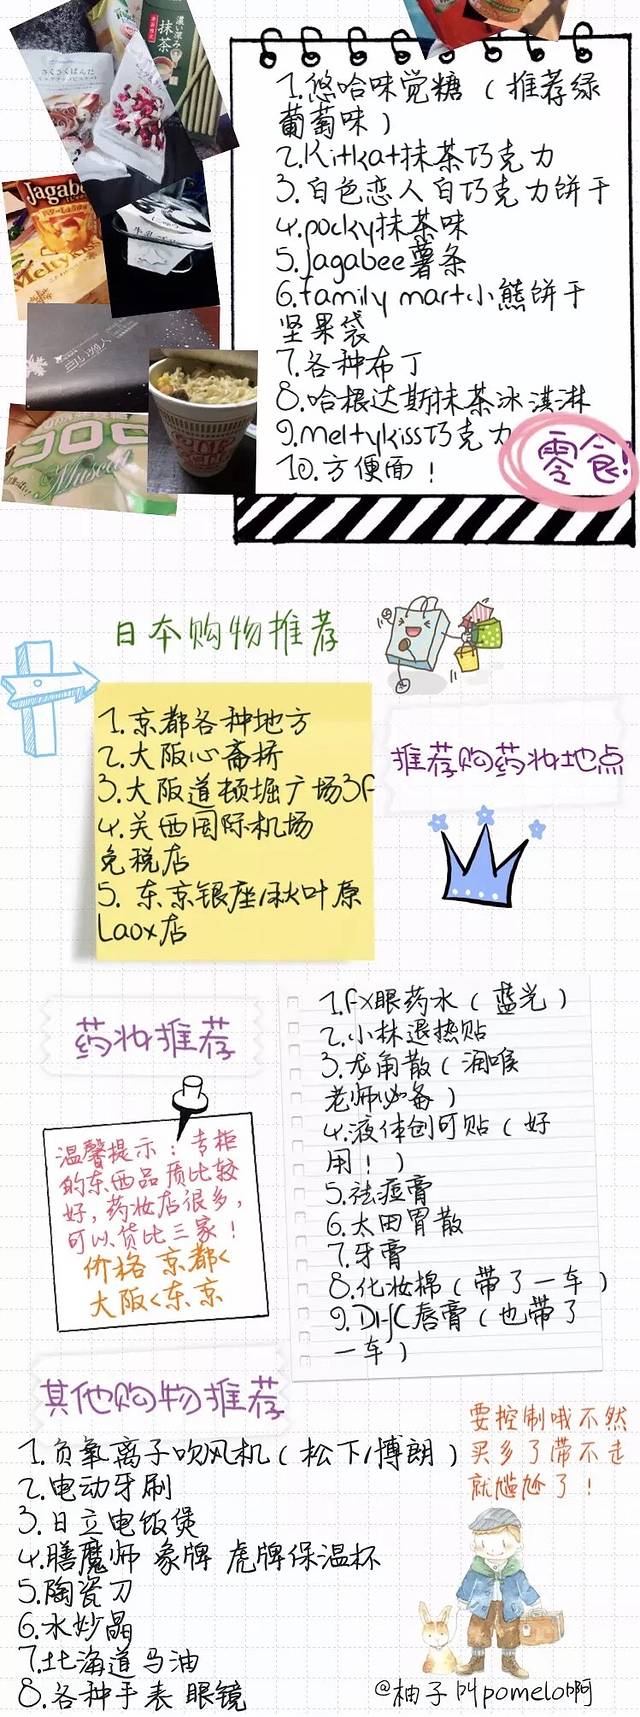 濃い深み
抹茶
さくさくぱんだ
Jagabee
Meltykiss
牛乳
白い恋人
Muscat
1.悠哈味觉糖（推荐绿
葡萄味）
2.Kitkat抹茶巧克力
3.白色恋人白巧克力饼干
4.pocky抹茶味
5.Jagabee薯条
6.family mart小熊饼干
坚果袋
7.各种布丁
8.哈根达斯抹茶冰淇淋
9.Meltykiss巧克力
10.方便面！
零食!
日本购物推荐
1.京都各种地方
2.大阪心斋桥
3.大阪道顿堀广场3F
4.关西国际机场
免税店
5.东京银座/秋叶原
Laox店
推荐购药妆地点
药妆推荐
温馨提示：专柜
的东西品质比较
好，药妆店很多，
可以货比三家！
价格 京都<
大阪<东京
1.fx眼药水（蓝光）
2.小林退热贴
3.龙角散（润喉
老师必备）
4.液体创可贴（好
用！）
5.祛痘膏
6.太田胃散
7.牙膏
8.化妆棉（带了一车）
9.DHC唇膏（也带了
一车）
其他购物推荐
1.负氧离子吹风机（松下/博朗）
2.电动牙刷
3.日立电饭煲
4.膳魔师 象牌 虎牌保温杯
5.陶瓷刀
6.水妙晶
7.北海道马油
8.各种手表 眼镜
要控制哦不然
买多了带不走
就尴尬了！
@柚子叫pomelo啊